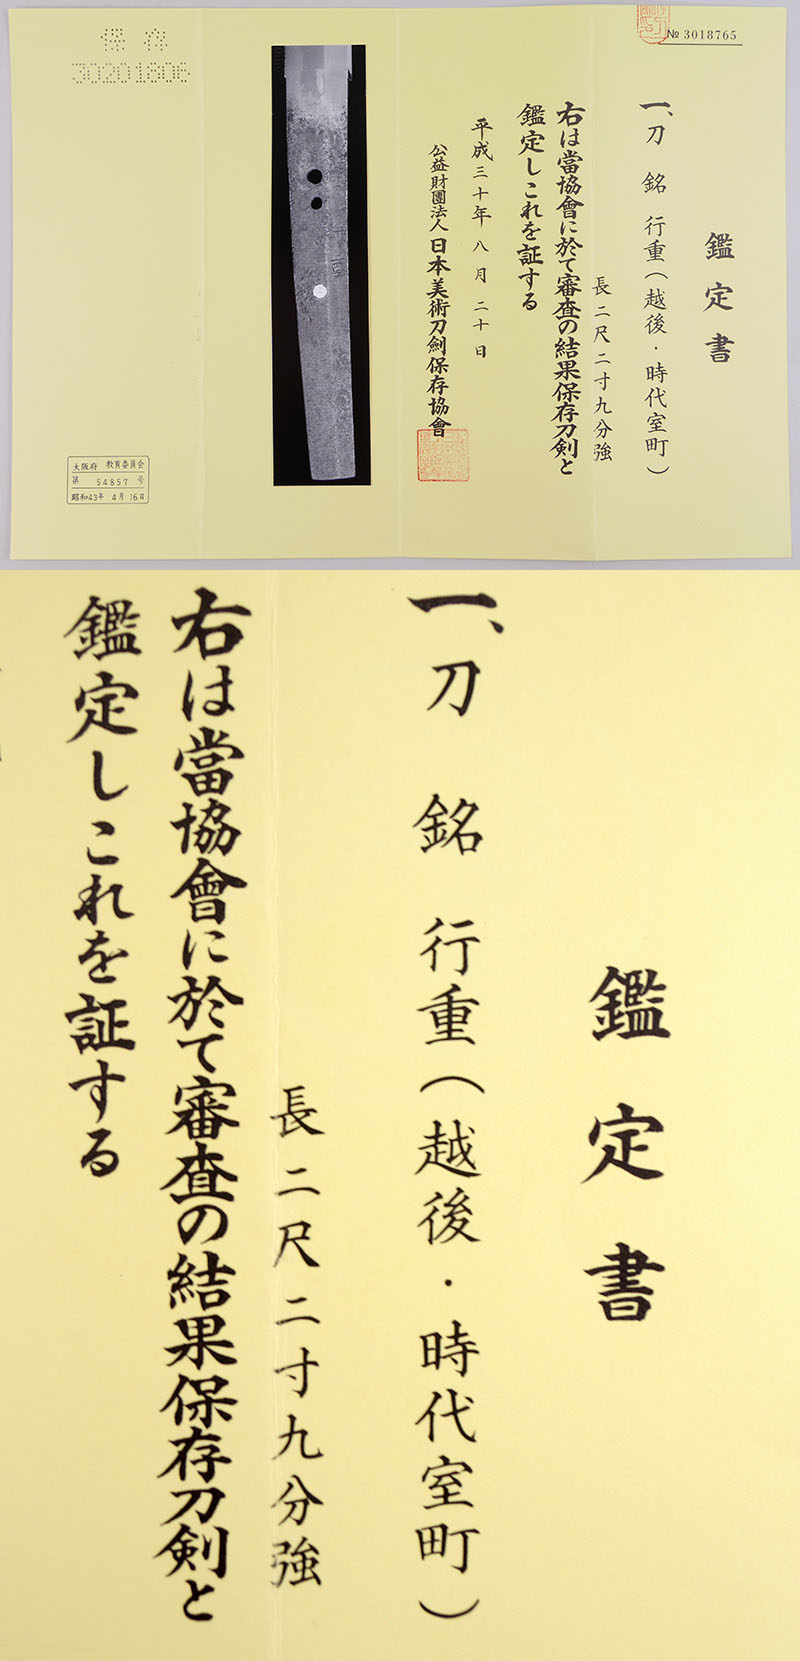 № 3018765
鑑定書
一、刀 銘 行重(越後・時代室町)
長二尺二寸九分強
右は當協會に於て審査の結果保存刀剣と
鑑定しこれを証する
平成三十年八月二十日
公益財團法人日本美術刀劍保存協會
保存
30201806
大阪府 教育委員会
第 54857 号
昭和43年 4月 16日
鑑定書
一、刀 銘 行重(越後・時代室町)
長二尺二寸九分強
右は當協會に於て審査の結果保存刀剣と
鑑定しこれを証する